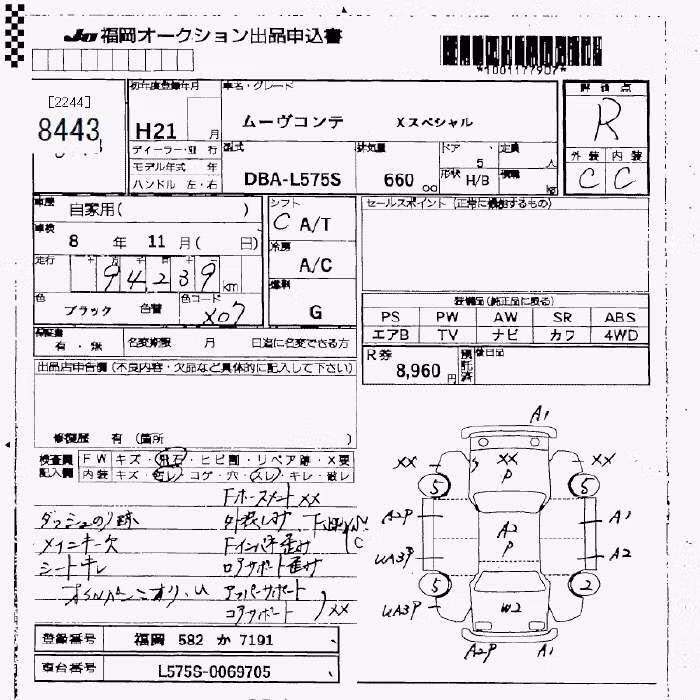 JU 福岡オークション出品申込書
*1001177907*
[2244]
8443
初年度登録年月
H21 月
車名・グレード
ムーヴコンテ Xスペシャル
評価点
R
外装 内装
C C
ディーラー・並行
モデル年式 年
ハンドル 左・右
型式
DBA-L575S
排気量
660 00
ドア
5
形状 H/B
定員
人
積載
kg
車歴 自家用( )
車検 8 年 11 月( 日)
走行 94239 km
色 ブラック 色替
色コード X07
シフト
C A/T
冷房
A/C
燃料
G
セールスポイント (正常に機能するもの)
装備品(純正品に限る)
PS PW AW SR ABS
エアB TV ナビ カワ 4WD
保証書 有・無
名変期限 月 日迄に名変できる方
R券 8,960 円
預託済
後日品
出品店申告欄 (不良内容・欠品など具体的に記入して下さい)
修復歴 有 (箇所 )
検査員記入欄
FW キズ・飛石・ヒビ割・リペア跡・X要
内装 キズ・切レ・コゲ・穴・スレ・キレ・破レ
Fホースメント XX
ダッシュのり跡
メインキー欠
シートキレ
Fインパネ歪み
ロアサポート歪み
アッパーサポート
コアサポート ) XX
A1
XX XX XX
P
5 5
A2P A1
A2
P
UA3P A2
5 2
UA3P W2
A2P A1
登録番号 福岡 582 か 7191
車台番号 L575S-0069705